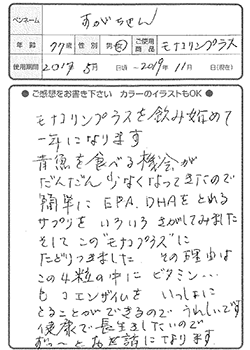 ペンネーム すがちゃん
年齢 77歳 性別 男・女 ご使用商品 モナコリンプラス
使用期間 2017年 5月 日頃 〜 2019年 11月 日(現在)
●ご感想をお書き下さい カラーのイラストもOK●
モナコリンプラスを飲み始めて
一年になります
青魚を食べる機会が
だんだん少なくなってきたので
簡単に EPA、DHAをとれる
サプリをいろいろさがしてみました
そしてこの"モナコプラス"に
たどりつきました その理由は
この4粒の中にビタミン…
も コエンザイムを いっしょに
とることができるので うれしいです
健康で長生きしたいので
ずっ〜とお世話になります